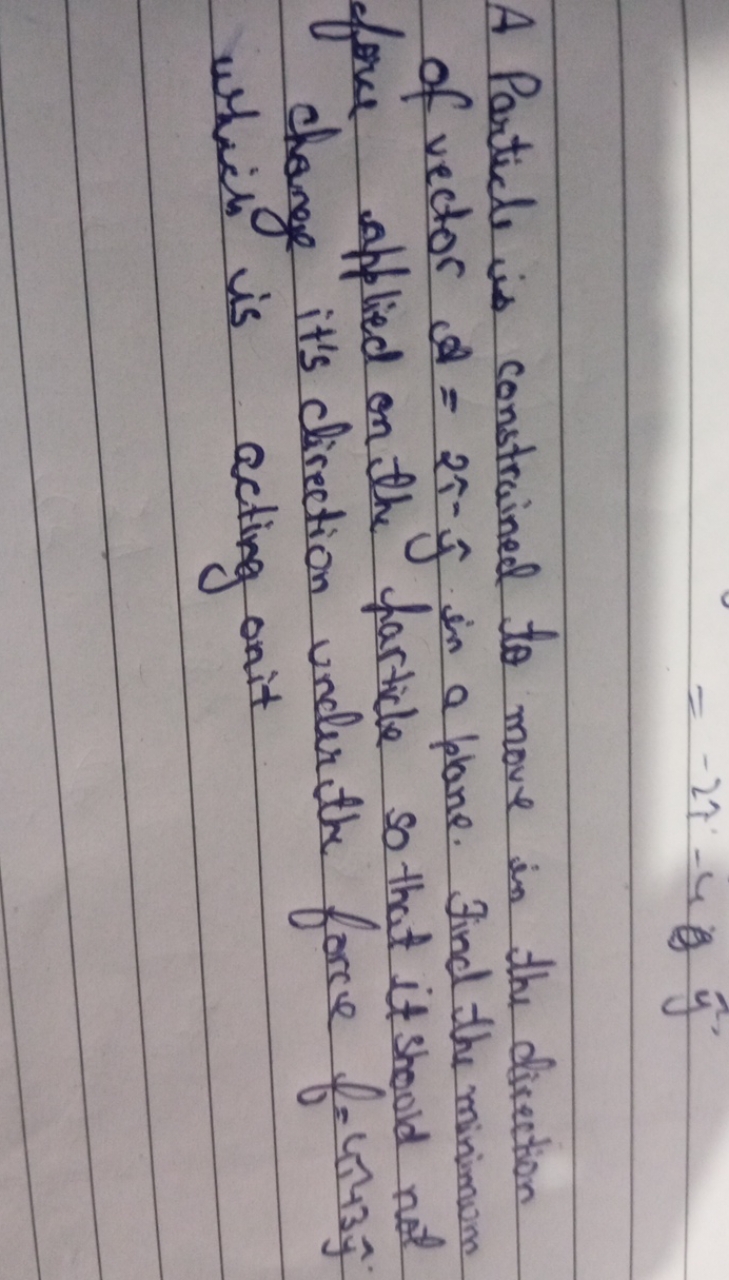 = -2î - 4 ŷ
A Particle is constrained to move in the direction
of vector A = 2î-ŷ in a plane. Find the minimum
force applied on the particle so that it should not
change it's direction under the force f=4î+3ŷ
which is acting on it